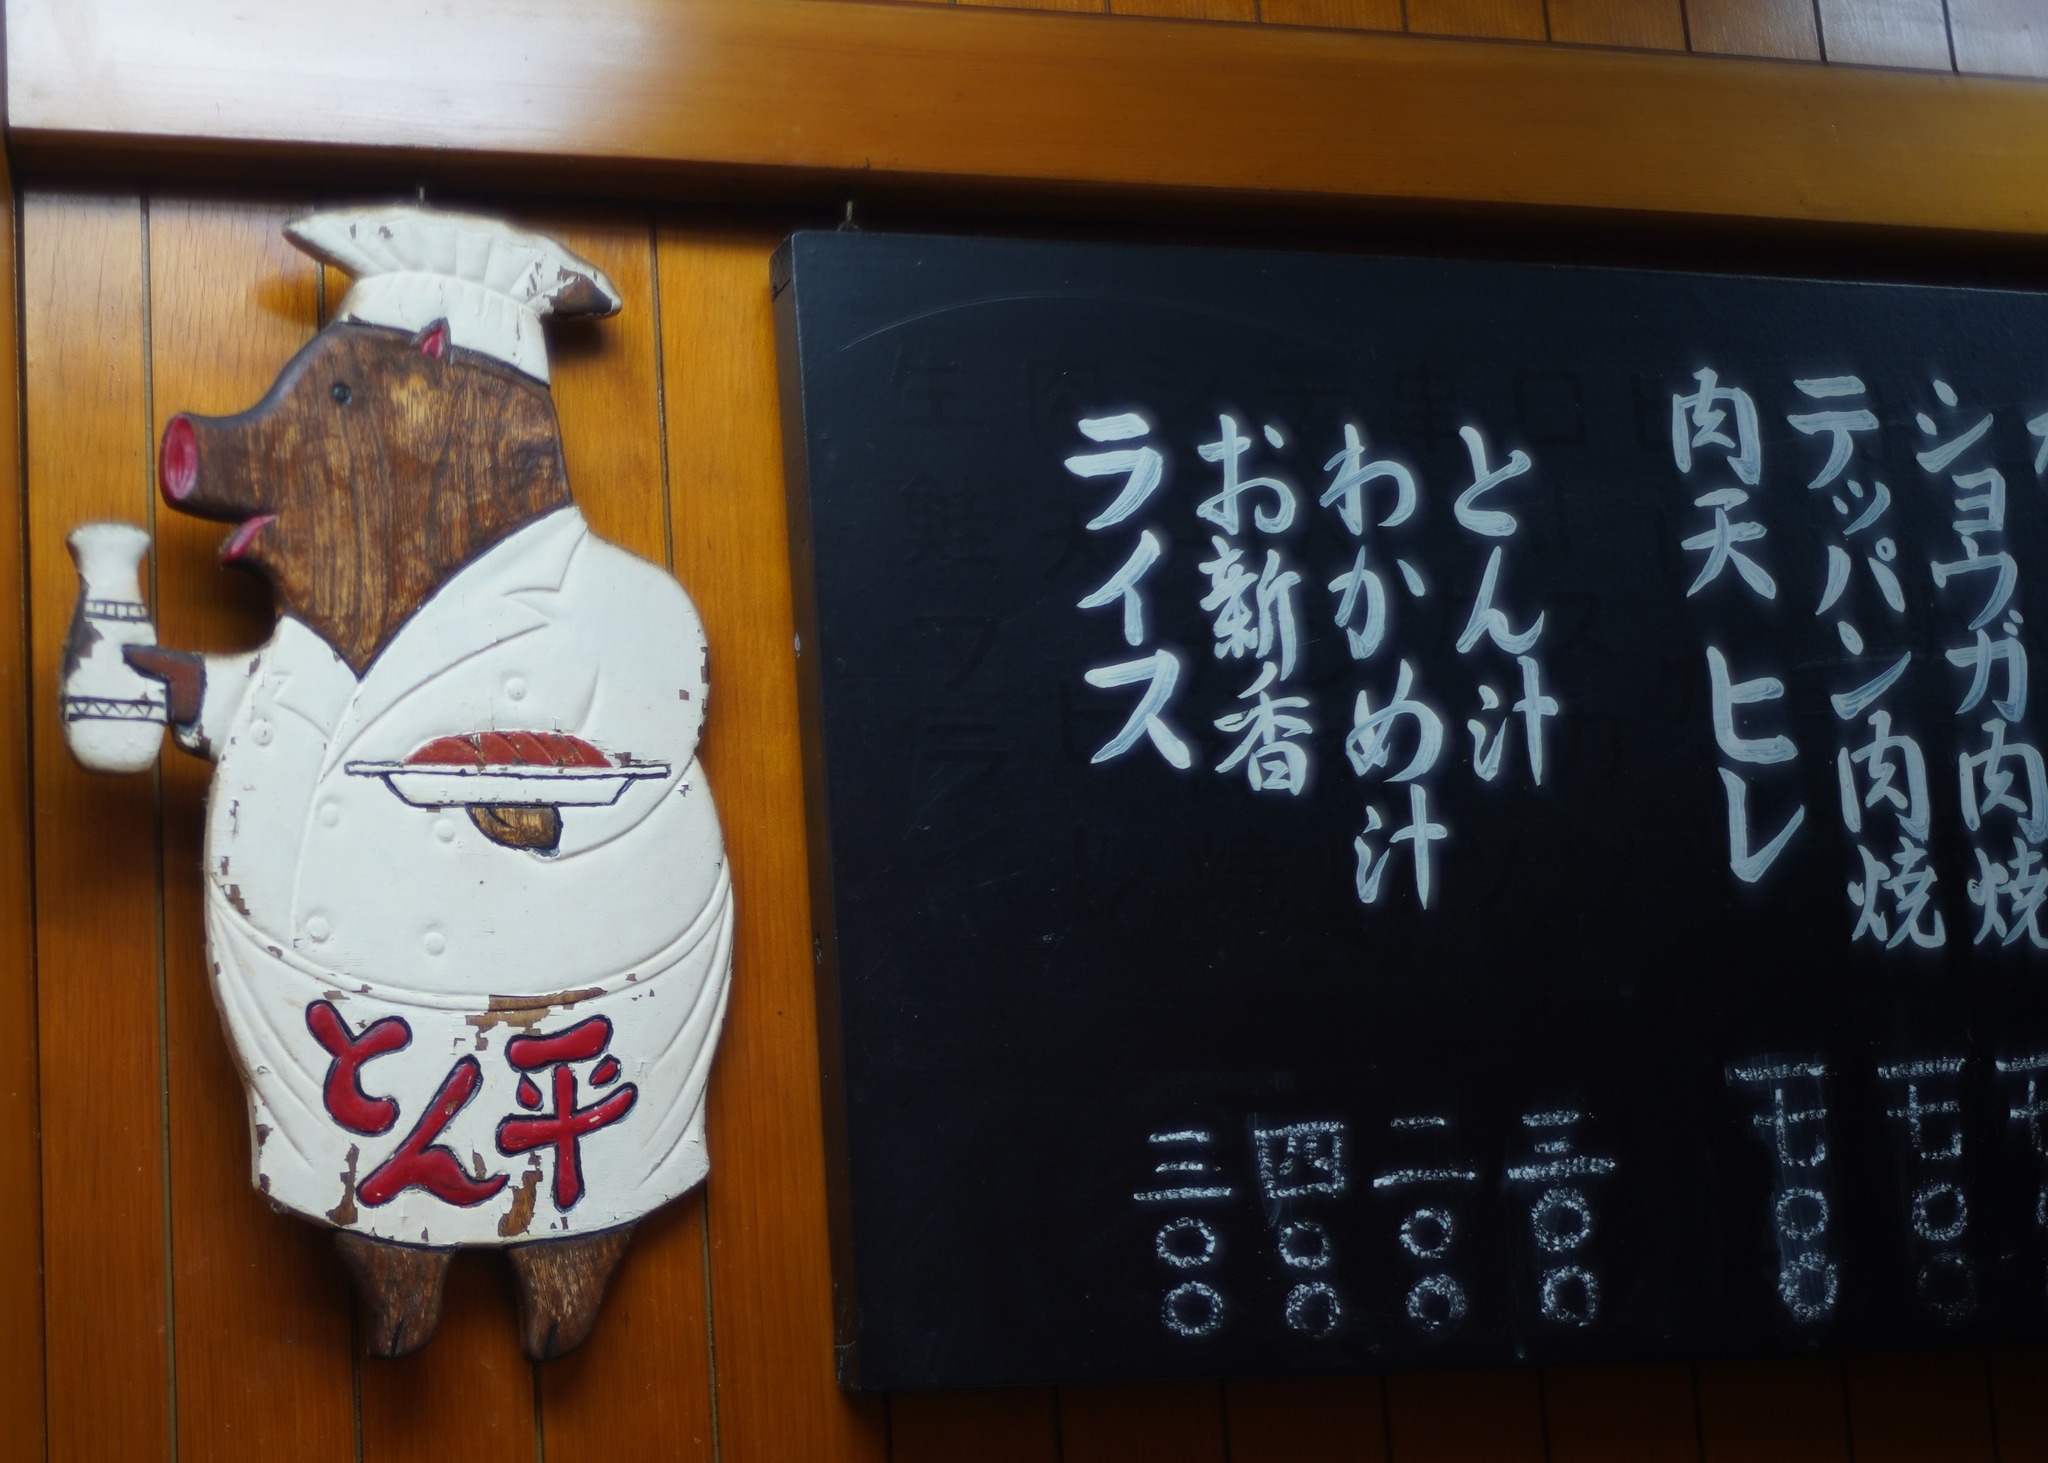 ショウガ肉焼
テッパン肉焼 一七〇〇
肉天 ヒレ 一七〇〇
とん汁 三〇〇
わかめ汁 二〇〇
お新香 四〇〇
ライス 三〇〇
とん平